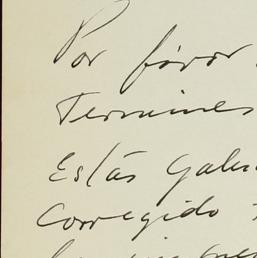 Por favor
Termines
Estás Gale
Corregido